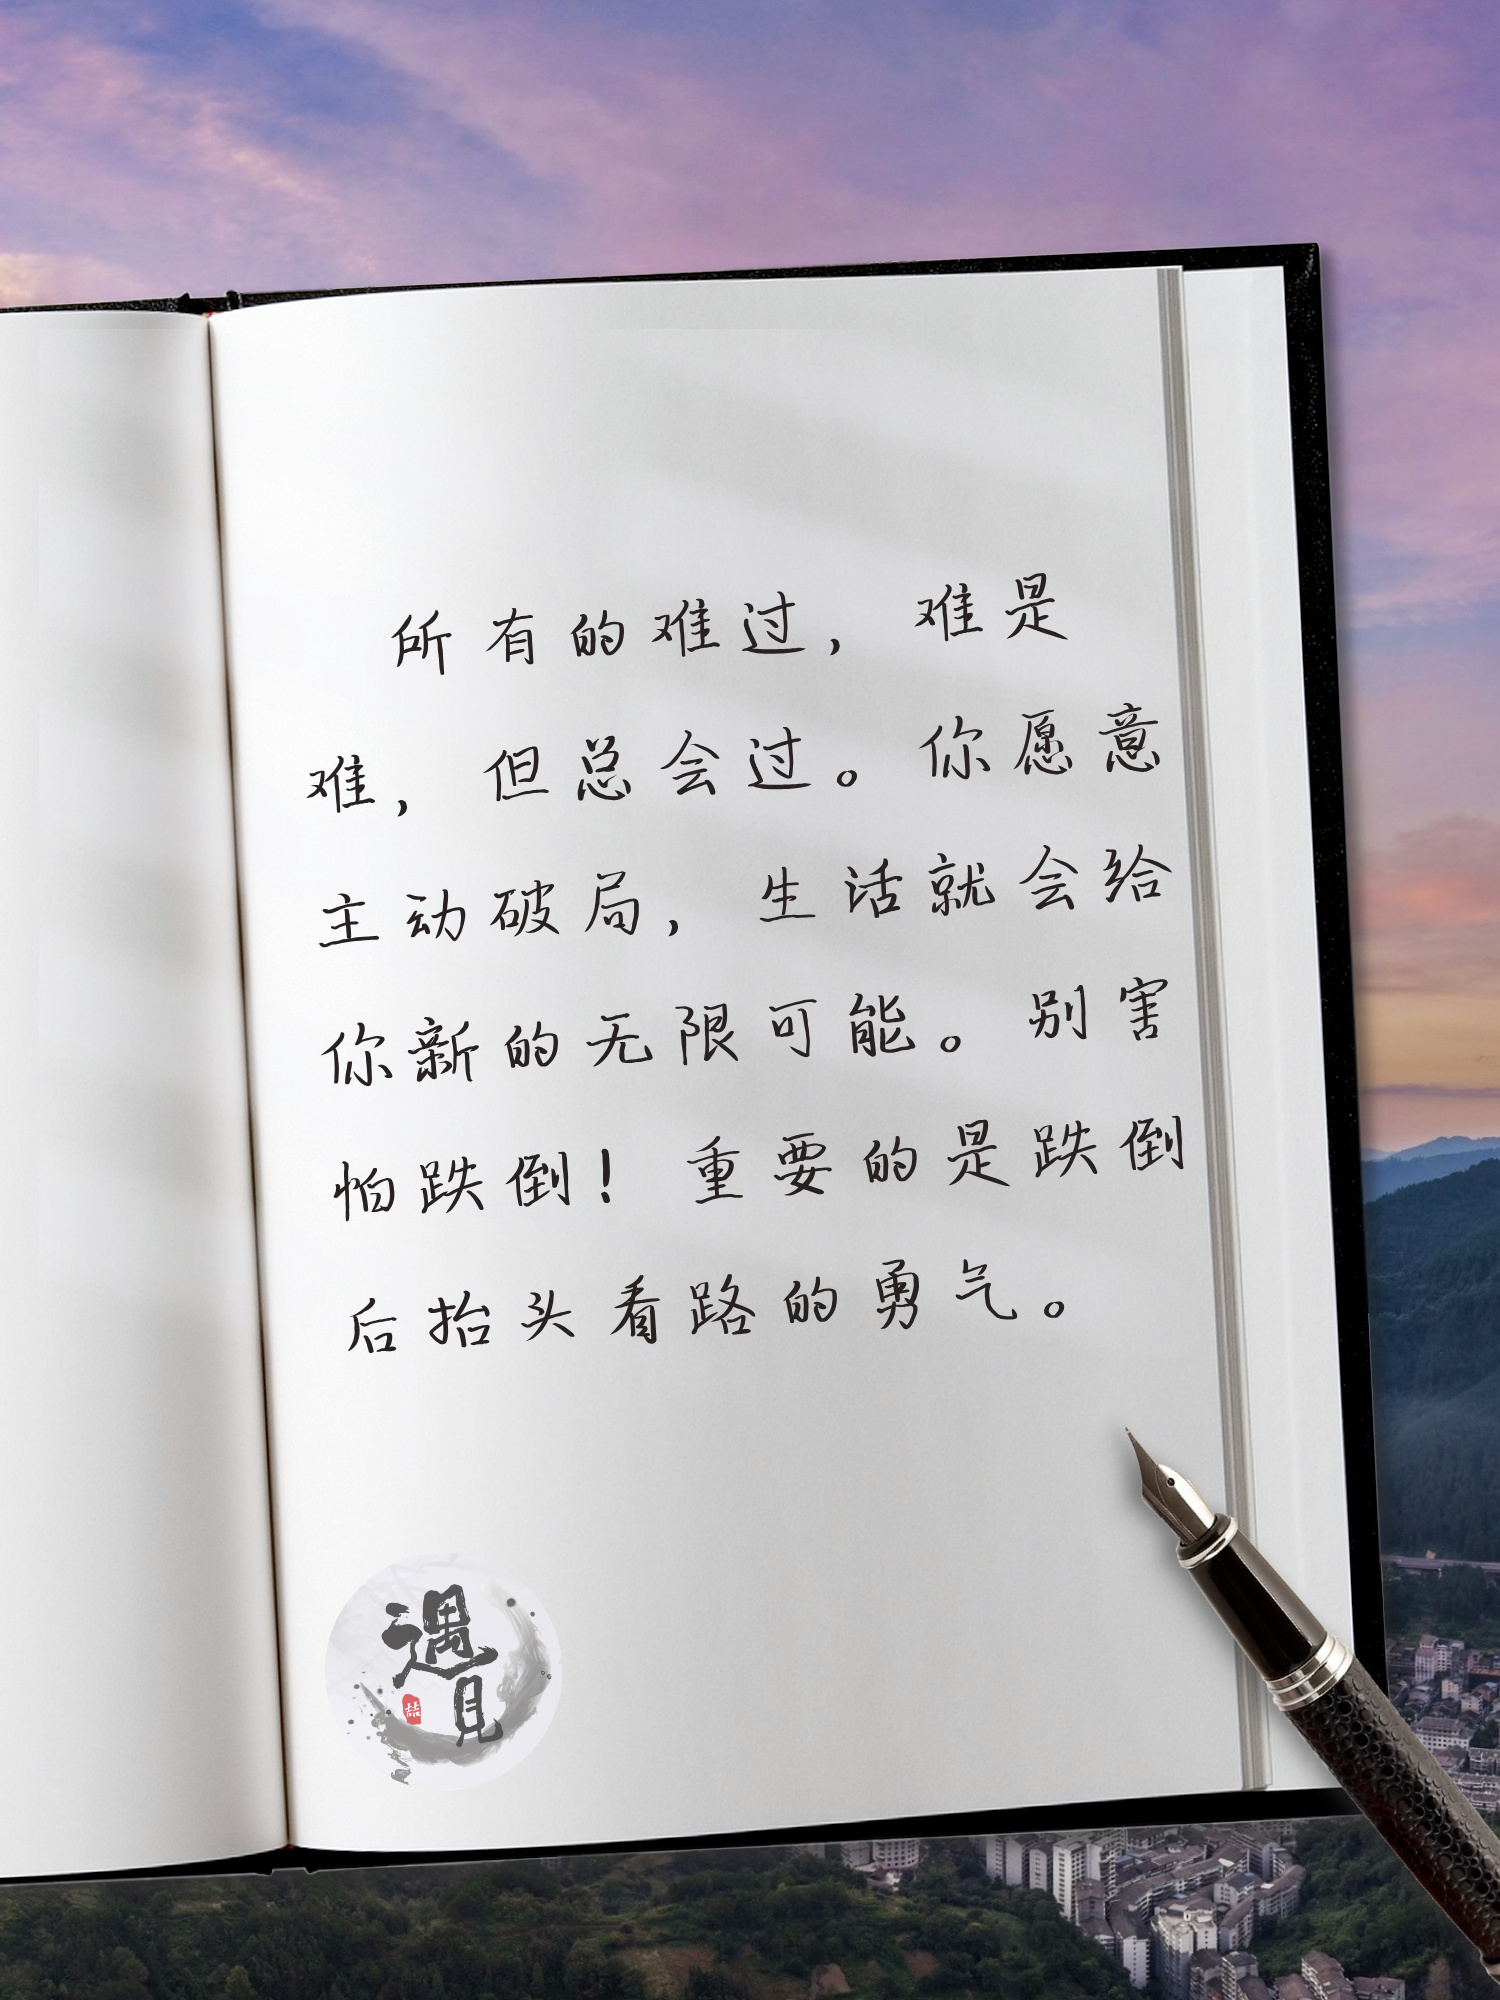 所有的难过，难是
难，但总会过。你愿意
主动破局，生活就会给
你新的无限可能。别害
怕跌倒！重要的是跌倒
后抬头看路的勇气。
遇
见